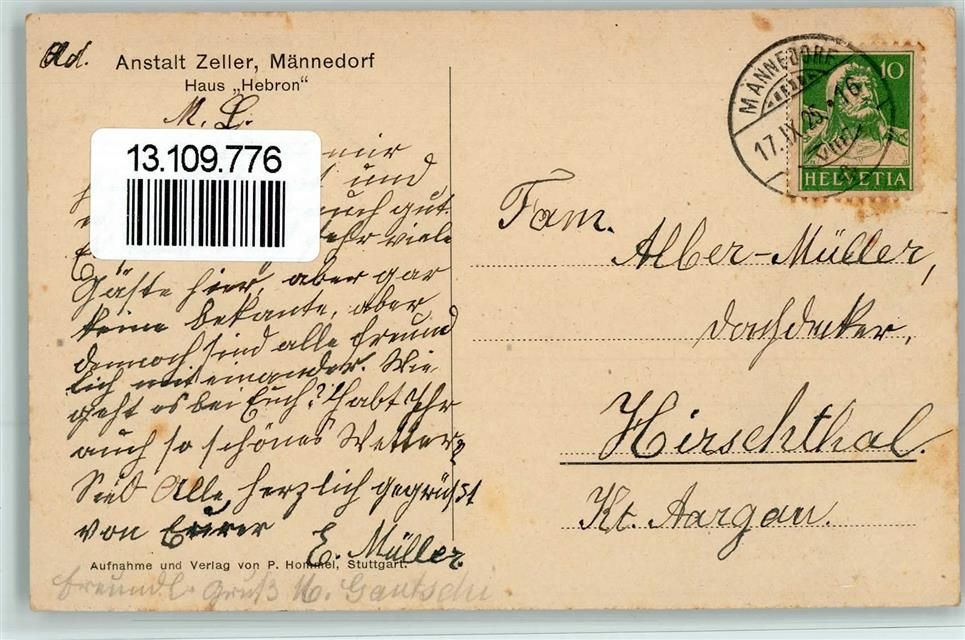 Anstalt Zeller, Männedorf
Haus „Hebron“
M. L.
13.109.776
mir
und
auch gut.
sehr viele
Gäste hier, aber gar
keine bekante, aber
dennoch sind alle freund
lich miteinander. Wie
geht es bei Euch? Habt Ihr
auch so schönes Wetter?
Seid Alle herzlich gegrüßt
von Eurer
E. Müller.
Aufnahme und Verlag von P. Hommel, Stuttgart.
freundl. Gruß M. Gautschi
MÄNNEDORF
17.IX.25.-16
VIII
10
HELVETIA
Fam.
Alber-Müller,
Dachdeker,
Hirschthal.
Kt. Aargau.